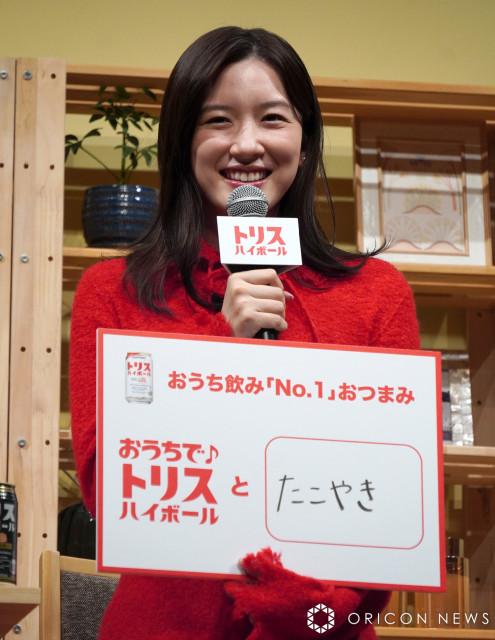 トリス
ハイボール
トリス
ハイボール
おうち飲み「No.1」おつまみ
おうちで♪
トリス
ハイボール
と
たこやき
ORICON NEWS